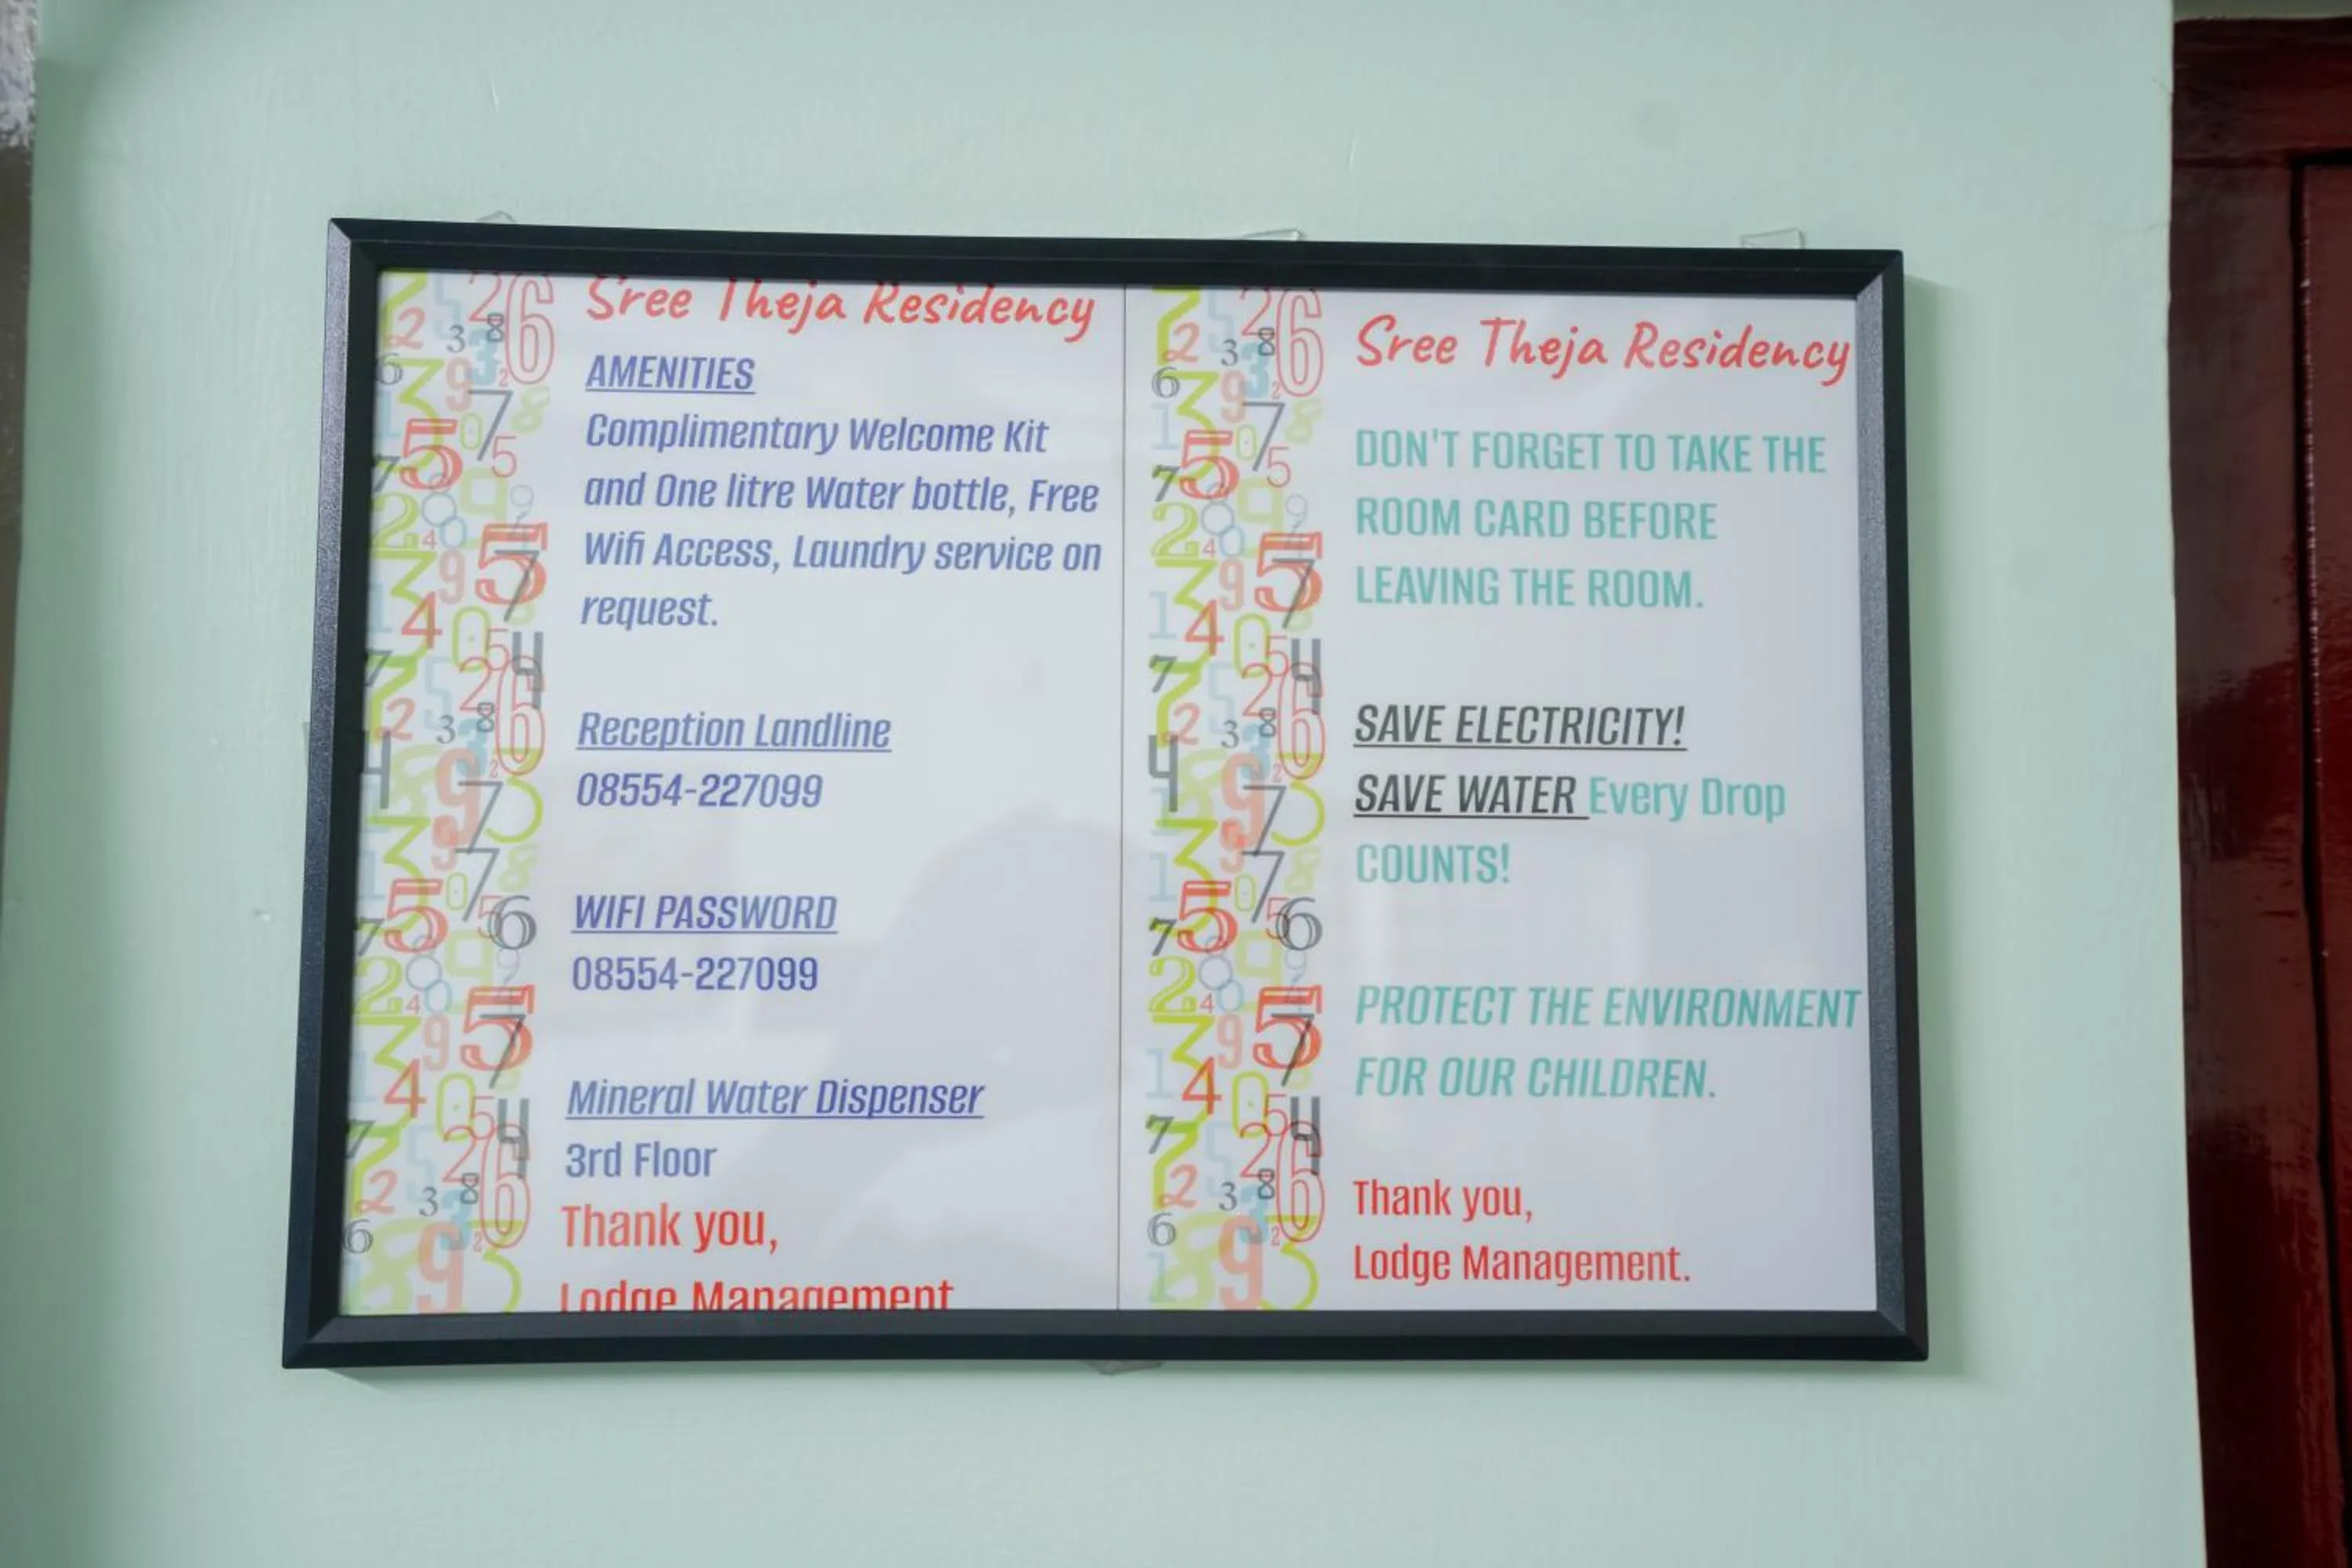 Sree Theja Residency
AMENITIES
Complimentary Welcome Kit
and One litre Water bottle, Free
Wifi Access, Laundry service on
request.
Reception Landline
08554-227099
WIFI PASSWORD
08554-227099
Mineral Water Dispenser
3rd Floor
Thank you,
Lodge Management
Sree Theja Residency
DON'T FORGET TO TAKE THE
ROOM CARD BEFORE
LEAVING THE ROOM.
SAVE ELECTRICITY!
SAVE WATER Every Drop
COUNTS!
PROTECT THE ENVIRONMENT
FOR OUR CHILDREN.
Thank you,
Lodge Management.